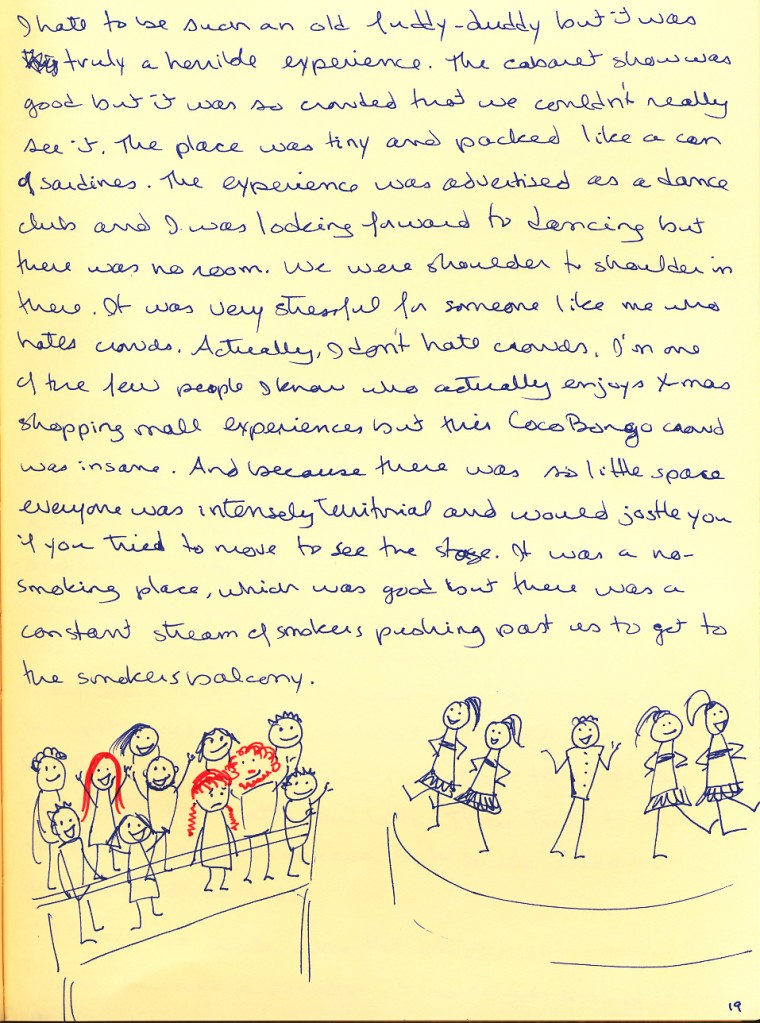 I hate to be such an old fuddy-duddy but it was
truly a horrible experience. The cabaret show was
good but it was so crowded that we couldn't really
see it. The place was tiny and packed like a can
of sardines. The experience was advertised as a dance
club and I was looking forward to dancing but
there was no room. We were shoulder to shoulder in
there. It was very stressful for someone like me who
hates crowds. Actually, I don't hate crowds, I'm one
of the few people I know who actually enjoys X-mas
shopping mall experiences but this CocoBongo crowd
was insane. And because there was so little space
everyone was intensely territorial and would jostle you
if you tried to move to see the stage. It was a no-
smoking place, which was good but there was a
constant stream of smokers pushing past us to get to
the smokers balcony.
19